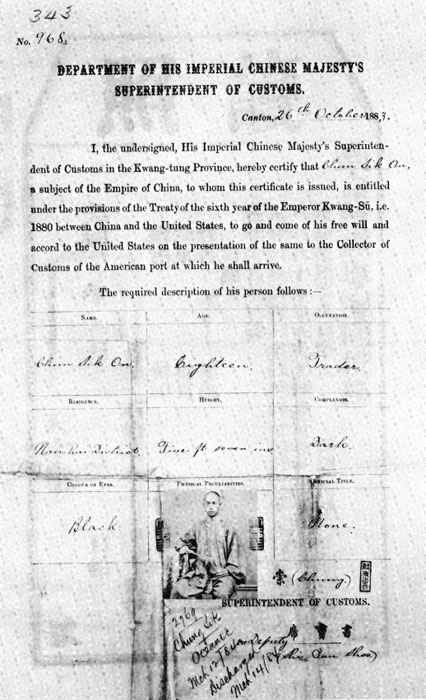 343
No. 968.
DEPARTMENT OF HIS IMPERIAL CHINESE MAJESTY'S
SUPERINTENDENT OF CUSTOMS.
Canton, 26th October 1883.
I, the undersigned, His Imperial Chinese Majesty's Superinten-
dent of Customs in the Kwang-tung Province, hereby certify that Chun Sik On,
a subject of the Empire of China, to whom this certificate is issued, is entitled
under the provisions of the Treaty of the sixth year of the Emperor Kwang-Sü, i.e.
1880 between China and the United States, to go and come of his free will and
accord to the United States on the presentation of the same to the Collector of
Customs of the American port at which he shall arrive.
The required description of his person follows:—
NAME. AGE. OCCUPATION.
Chun Sik On. Eighteen. Trader.
RESIDENCE. HEIGHT. COMPLEXION.
Nan hai District. Five ft seven ins Dark.
COLOUR OF EYES. PHYSICAL PECULIARITIES. OFFICIAL TITLE.
Black None.
崇 (Chung)
SUPERINTENDENT OF CUSTOMS.
Deputy
2769
Chung Sik
Oceanic
Mch 12/84
Discharged
Mch 14/84